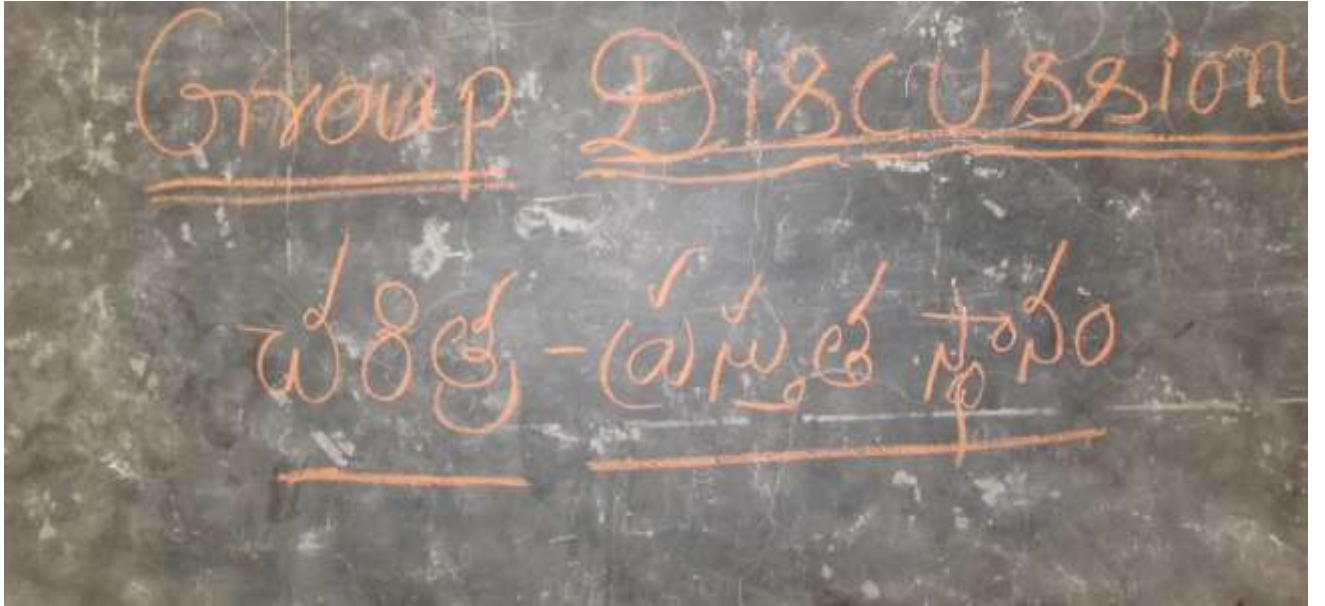 Group Discussion
చరిత్ర - ప్రస్తుత స్థానం